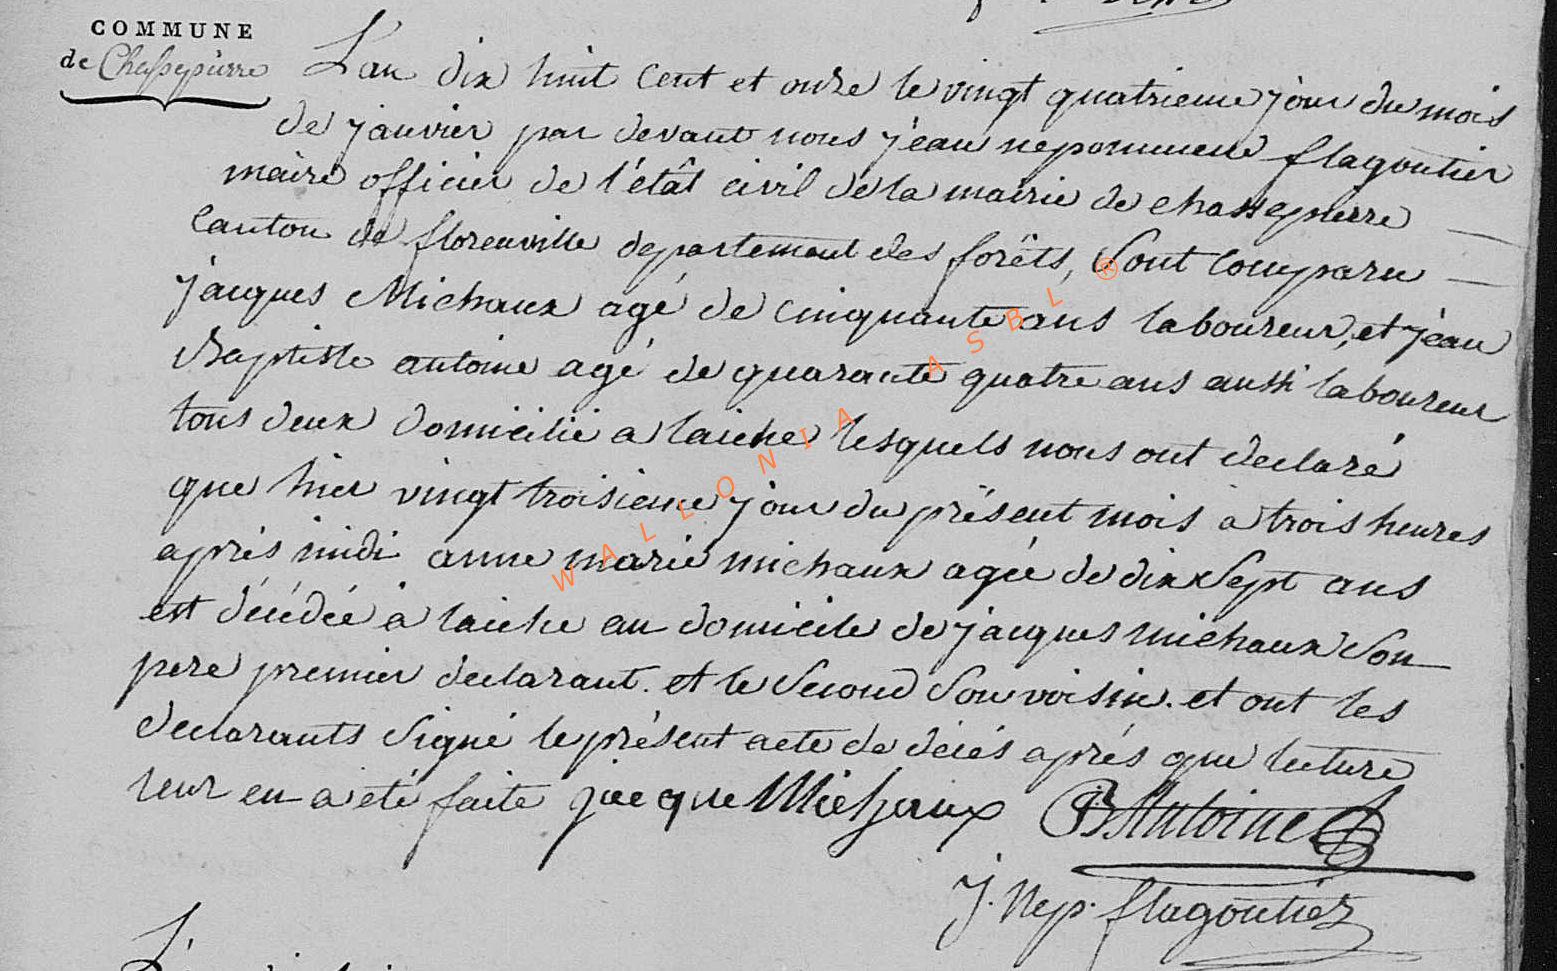 COMMUNE
de Chassepierre
L'an dix huit cent et onze le vingt quatrieme jour du mois
de janvier par devant nous jean nepomucene flagoutier
maire officier de l'étât civil de la mairie de chassepierre
canton de florenville departement des forêts, Sont comparu
jacques Michaux agé de cinquante ans laboureur, et jean
Baptiste antoine agé de quarante quatre ans aussi laboureur
tous deux domicilié a laiche lesquels nous ont declaré
que hier vingt troisieme jour du présent mois à trois heures
aprés midi anne marie michaux agée de dix Sept ans
est décédée à laiche au domicile de jacques michaux Son
pere premier declarant. et le Second Son voisin. et ont les
declarants Signé le présent acte de décés aprés que lecture
leur en a été faite jacque Michaux JB Antoine
J. Nep. flagoutier
WALLONIA ASBL ®
L'